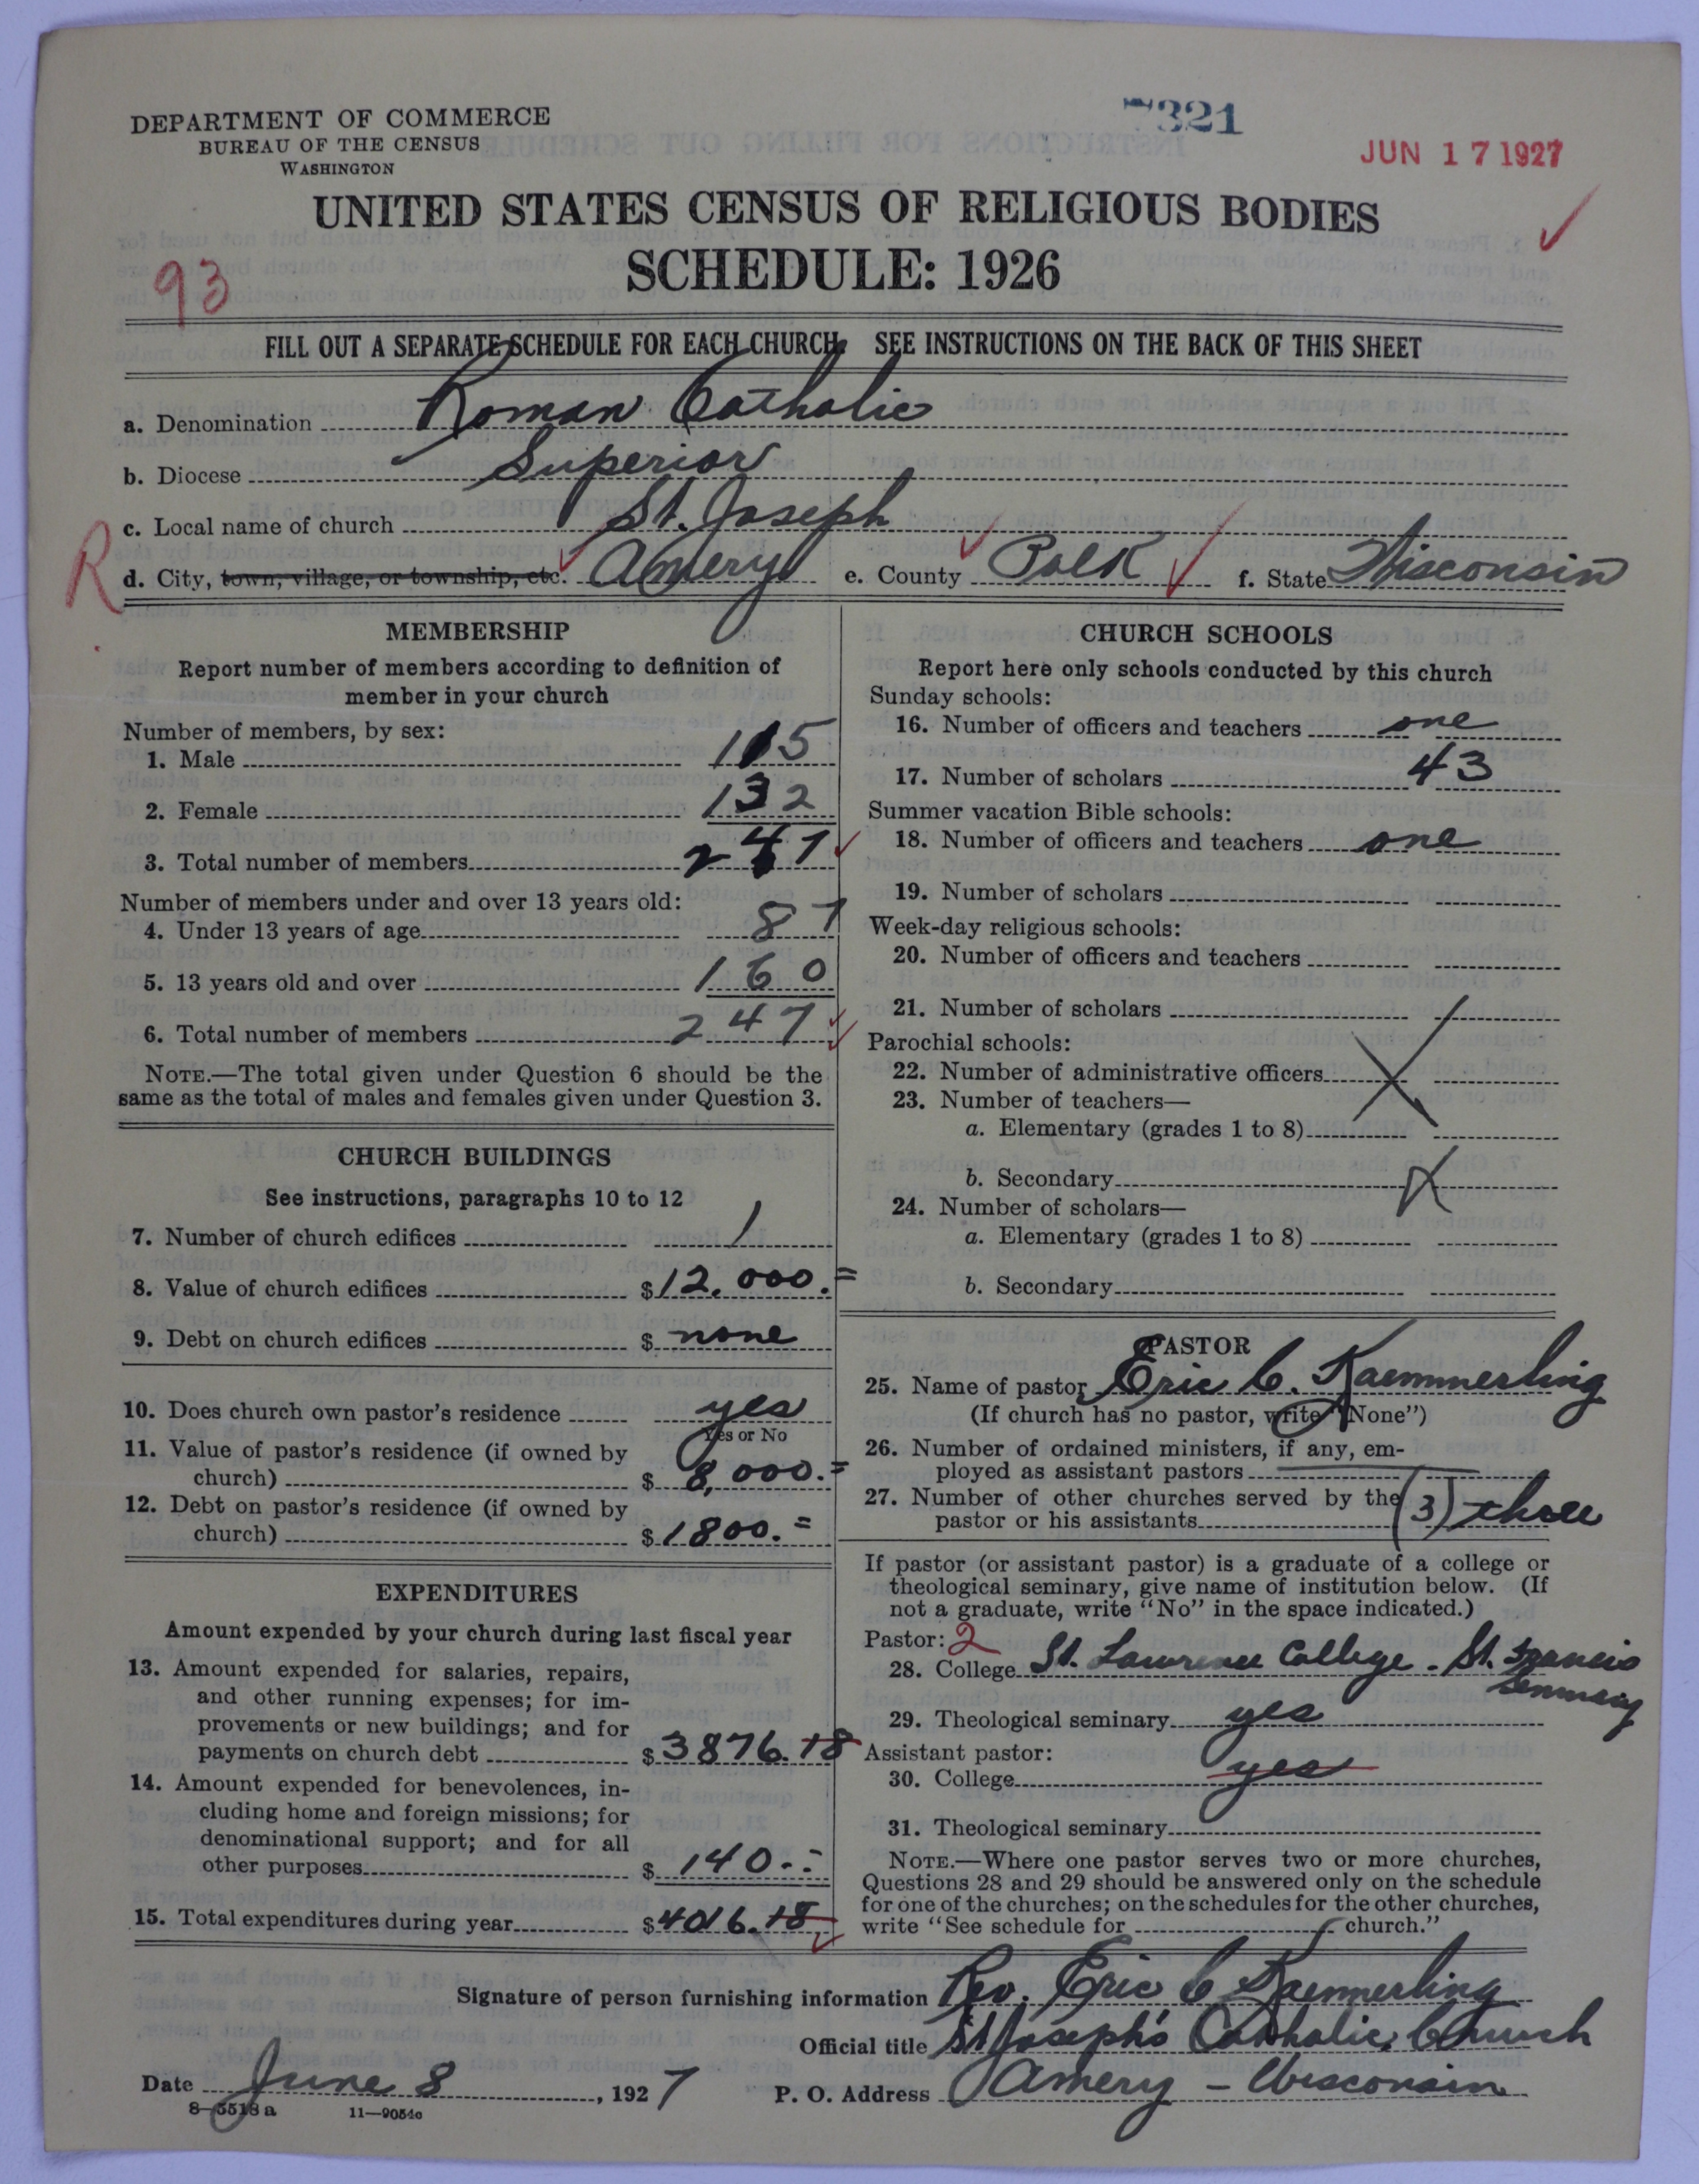 DEPARTMENT OF COMMERCE
BUREAU OF THE CENSUS
WASHINGTON
321
JUN 17 1927
UNITED STATES CENSUS OF RELIGIOUS BODIES
SCHEDULE: 1926
93
FILL OUT A SEPARATE SCHEDULE FOR EACH CHURCH. SEE INSTRUCTIONS ON THE BACK OF THIS SHEET
a. Denomination Roman Catholic
b. Diocese Superior
c. Local name of church St. Joseph
R
d. City, town, village, or township, etc. Amery e. County Polk f. State Wisconsin
MEMBERSHIP
Report number of members according to definition of
member in your church
Number of members, by sex:
1. Male 115
2. Female 132
3. Total number of members 247
Number of members under and over 13 years old:
4. Under 13 years of age 87
5. 13 years old and over 160
6. Total number of members 247
NOTE.—The total given under Question 6 should be the
same as the total of males and females given under Question 3.
CHURCH BUILDINGS
See instructions, paragraphs 10 to 12
7. Number of church edifices 1
8. Value of church edifices $12,000.=
9. Debt on church edifices $ none
10. Does church own pastor's residence yes
Yes or No
11. Value of pastor's residence (if owned by
church) $ 8,000.=
12. Debt on pastor's residence (if owned by
church) $ 1800.=
EXPENDITURES
Amount expended by your church during last fiscal year
13. Amount expended for salaries, repairs,
and other running expenses; for im-
provements or new buildings; and for
payments on church debt $3876.18
14. Amount expended for benevolences, in-
cluding home and foreign missions; for
denominational support; and for all
other purposes $ 140.-
15. Total expenditures during year $4016.18
CHURCH SCHOOLS
Report here only schools conducted by this church
Sunday schools:
16. Number of officers and teachers one
17. Number of scholars 43
Summer vacation Bible schools:
18. Number of officers and teachers one
19. Number of scholars
Week-day religious schools:
20. Number of officers and teachers
21. Number of scholars
Parochial schools:
22. Number of administrative officers
23. Number of teachers—
a. Elementary (grades 1 to 8)
b. Secondary
24. Number of scholars—
a. Elementary (grades 1 to 8)
b. Secondary
PASTOR
25. Name of pastor Eric C. Kaemmerling
(If church has no pastor, write "None")
26. Number of ordained ministers, if any, em-
ployed as assistant pastors
27. Number of other churches served by the
pastor or his assistants (3) three
If pastor (or assistant pastor) is a graduate of a college or
theological seminary, give name of institution below. (If
not a graduate, write "No" in the space indicated.)
Pastor: 2
28. College St. Lawrence College - St. Francis
Seminary
29. Theological seminary yes
Assistant pastor:
30. College yes
31. Theological seminary
NOTE.—Where one pastor serves two or more churches,
Questions 28 and 29 should be answered only on the schedule
for one of the churches; on the schedules for the other churches,
write "See schedule for church."
Signature of person furnishing information Rev. Eric C Kaemmerling
Official title St Joseph's Catholic Church
Date June 8, 1927 P. O. Address Amery - Wisconsin
8-5518 a 11-9054c